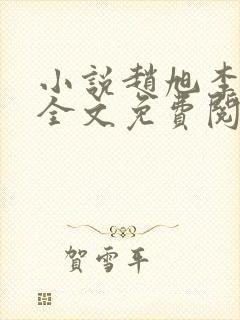 小説趙旭李
全文免費閱
賀雪平